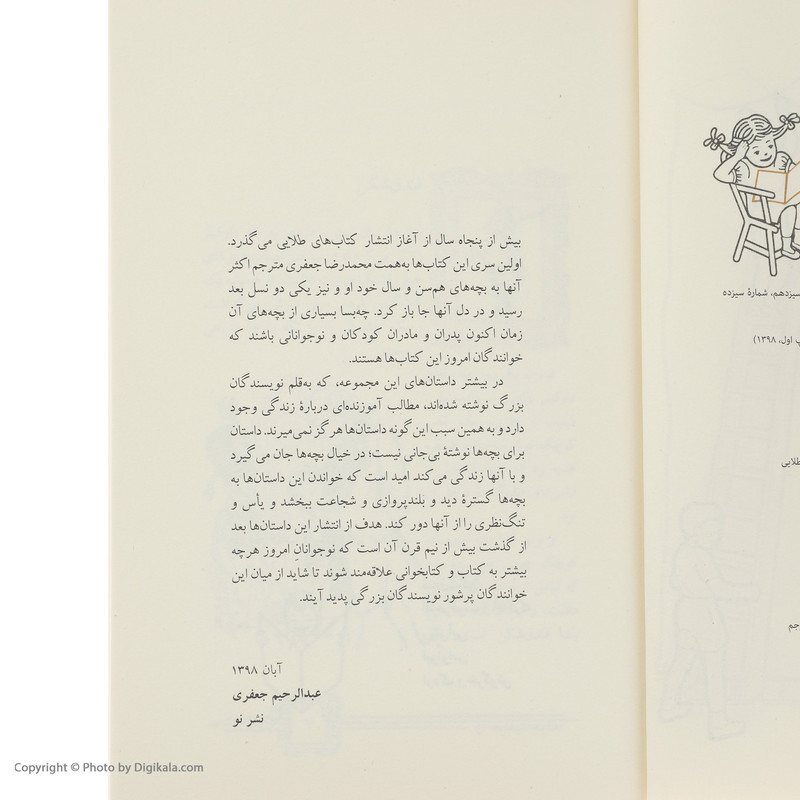 بیش از پنجاه سال از آغاز انتشار کتاب‌های طلایی می‌گذرد.
اولین سری این کتاب‌ها به‌همت محمدرضا جعفری مترجم اکثر
آنها به بچه‌های هم‌سن و سال خود او و نیز یکی دو نسل بعد
رسید و در دل آنها جا باز کرد. چه‌بسا بسیاری از بچه‌های آن
زمان اکنون پدران و مادران کودکان و نوجوانانی باشند که
خوانندگان امروز این کتاب‌ها هستند.
در بیشتر داستان‌های این مجموعه، که به‌قلم نویسندگان
بزرگ نوشته شده‌اند، مطالب آموزنده‌ای دربارهٔ زندگی وجود
دارد و به همین سبب این‌گونه داستان‌ها هرگز نمی‌میرند. داستان
برای بچه‌ها نوشتهٔ بی‌جانی نیست؛ در خیال بچه‌ها جان می‌گیرد
و با آنها زندگی می‌کند. امید است که خواندن این داستان‌ها به
بچه‌ها گسترهٔ دید و بلندپروازی و شجاعت ببخشد و یأس و
تنگ‌نظری را از آنها دور کند. هدف از انتشار این داستان‌ها بعد
از گذشت بیش از نیم قرن آن است که نوجوانانِ امروز هرچه
بیشتر به کتاب و کتابخوانی علاقه‌مند شوند تا شاید از میان این
خوانندگان پرشور نویسندگان بزرگی پدید آیند.
آبان ۱۳۹۸
عبدالرحیم جعفری
نشر نو
سیزدهم، شمارهٔ سیزده
اول، ۱۳۹۸)
Copyright © Photo by Digikala.com